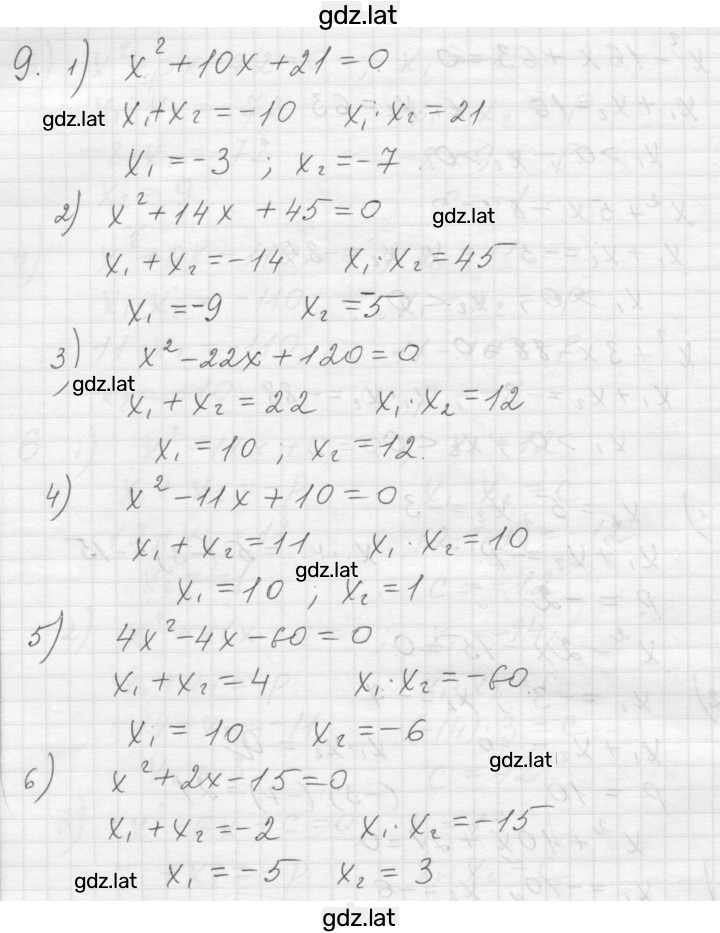 gdz.lat
9. 1) x² + 10x + 21 = 0
gdz.lat x₁ + x₂ = -10 x₁ · x₂ = 21
x₁ = -3 ; x₂ = -7
2) x² + 14x + 45 = 0 gdz.lat
x₁ + x₂ = -14 x₁ · x₂ = 45
x₁ = -9 x₂ = -5
3) x² - 22x + 120 = 0
gdz.lat
x₁ + x₂ = 22 x₁ · x₂ = 12
x₁ = 10 ; x₂ = 12.
4) x² - 11x + 10 = 0
x₁ + x₂ = 11 x₁ · x₂ = 10
gdz.lat
x₁ = 10 ; x₂ = 1
5) 4x² - 4x - 60 = 0
x₁ + x₂ = 4 x₁ · x₂ = -60.
x₁ = 10 x₂ = -6
gdz.lat
6) x² + 2x - 15 = 0
x₁ + x₂ = -2 x₁ · x₂ = -15
gdz.lat x₁ = -5 x₂ = 3
gdz.lat